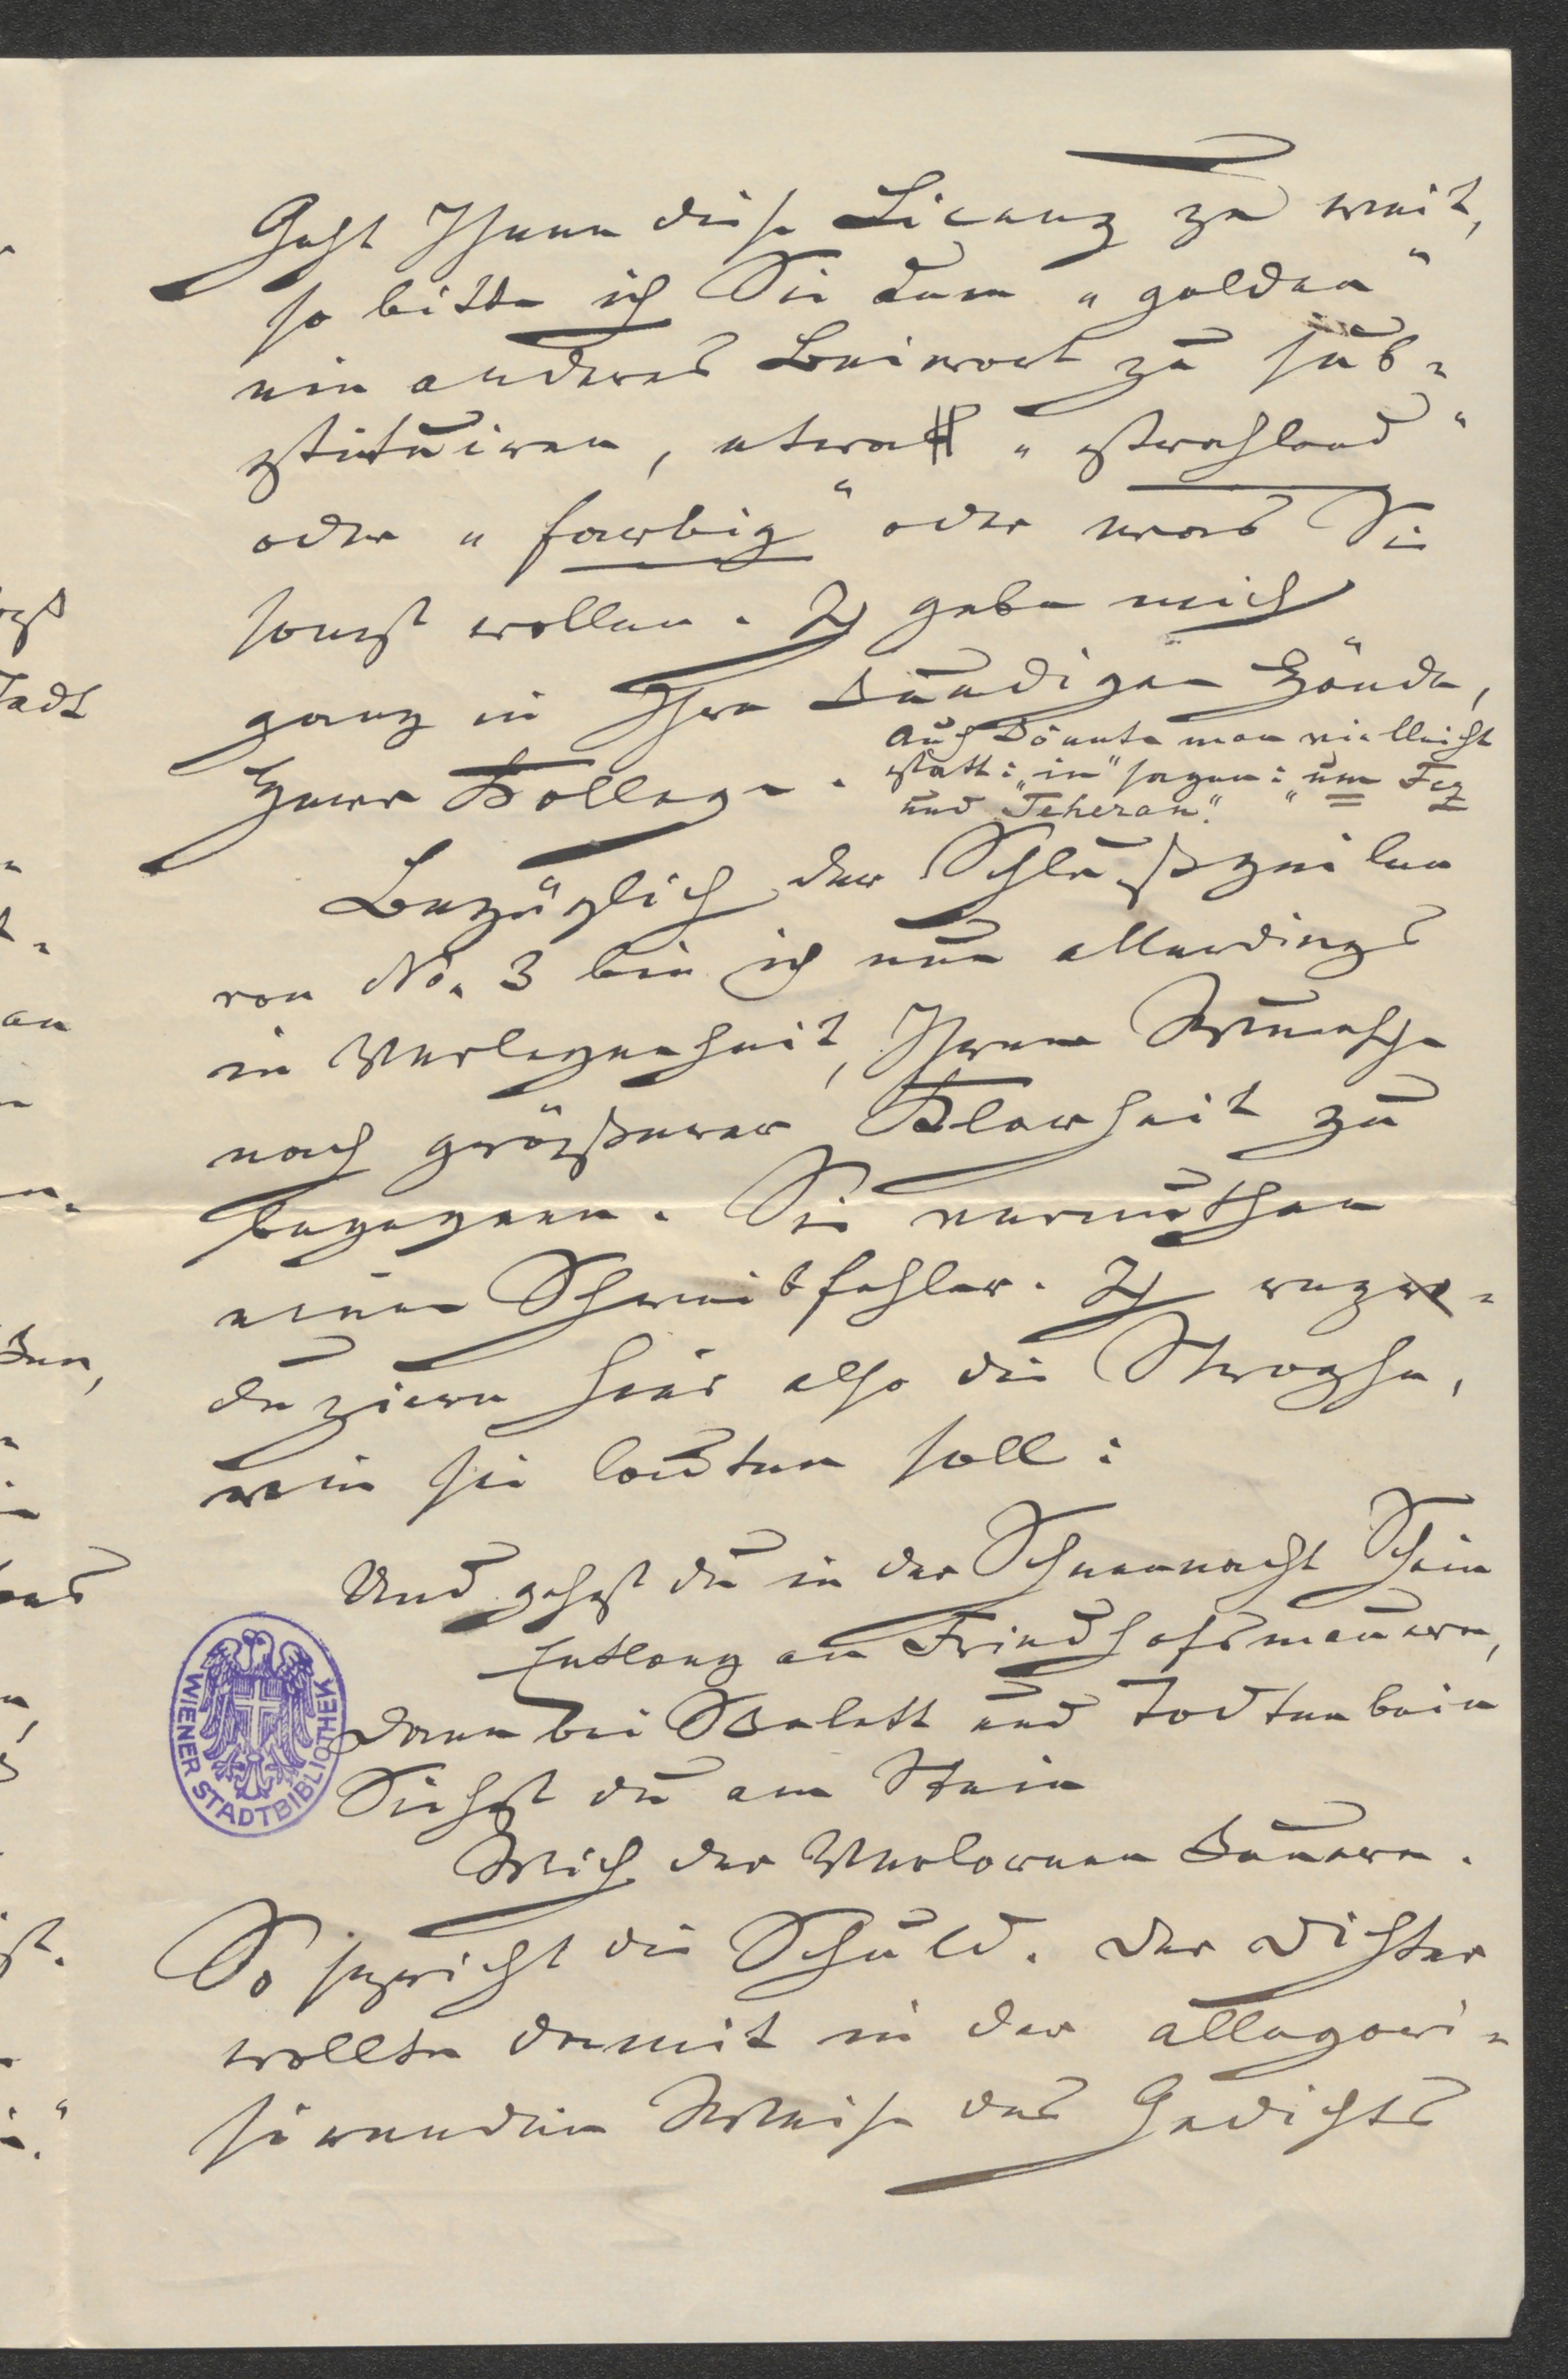 Geht Ihnen diese Licenz zu weit,
so bitte ich Sie dem „golden“
ein anderes Beiwort zu sub-
stituiren, etwa „strahlend“
oder „farbig“ oder was Sie
sonst wollen. Ich gebe mich
ganz in Ihre kundigen Hände,
Herr Kollege.
Auch könnte man vielleicht
statt: „in“ sagen: „um Fez
und Teheran“.
Bezüglich der Schlußzeilen
von No. 3 bin ich nun allerdings
in Verlegenheit, Ihrem Wunsche
nach größerer Klarheit zu
begegnen. Sie vermuthen
einen Schreibfehler. Ich
hier also die Strophe,
wie sie lauten soll:
Und gehst du in der Schneenacht Schein
Entlang an Friedhofsmauern,
Dann bei Skelett und Todtenbein
Siehst du am Stein
Mich der Verlornen kauern.
So spricht die Schuld. Der Dichter
wollte damit in der allegori-
sirenden Weise des Gedichts
WIENER STADTBIBLIOTHEK